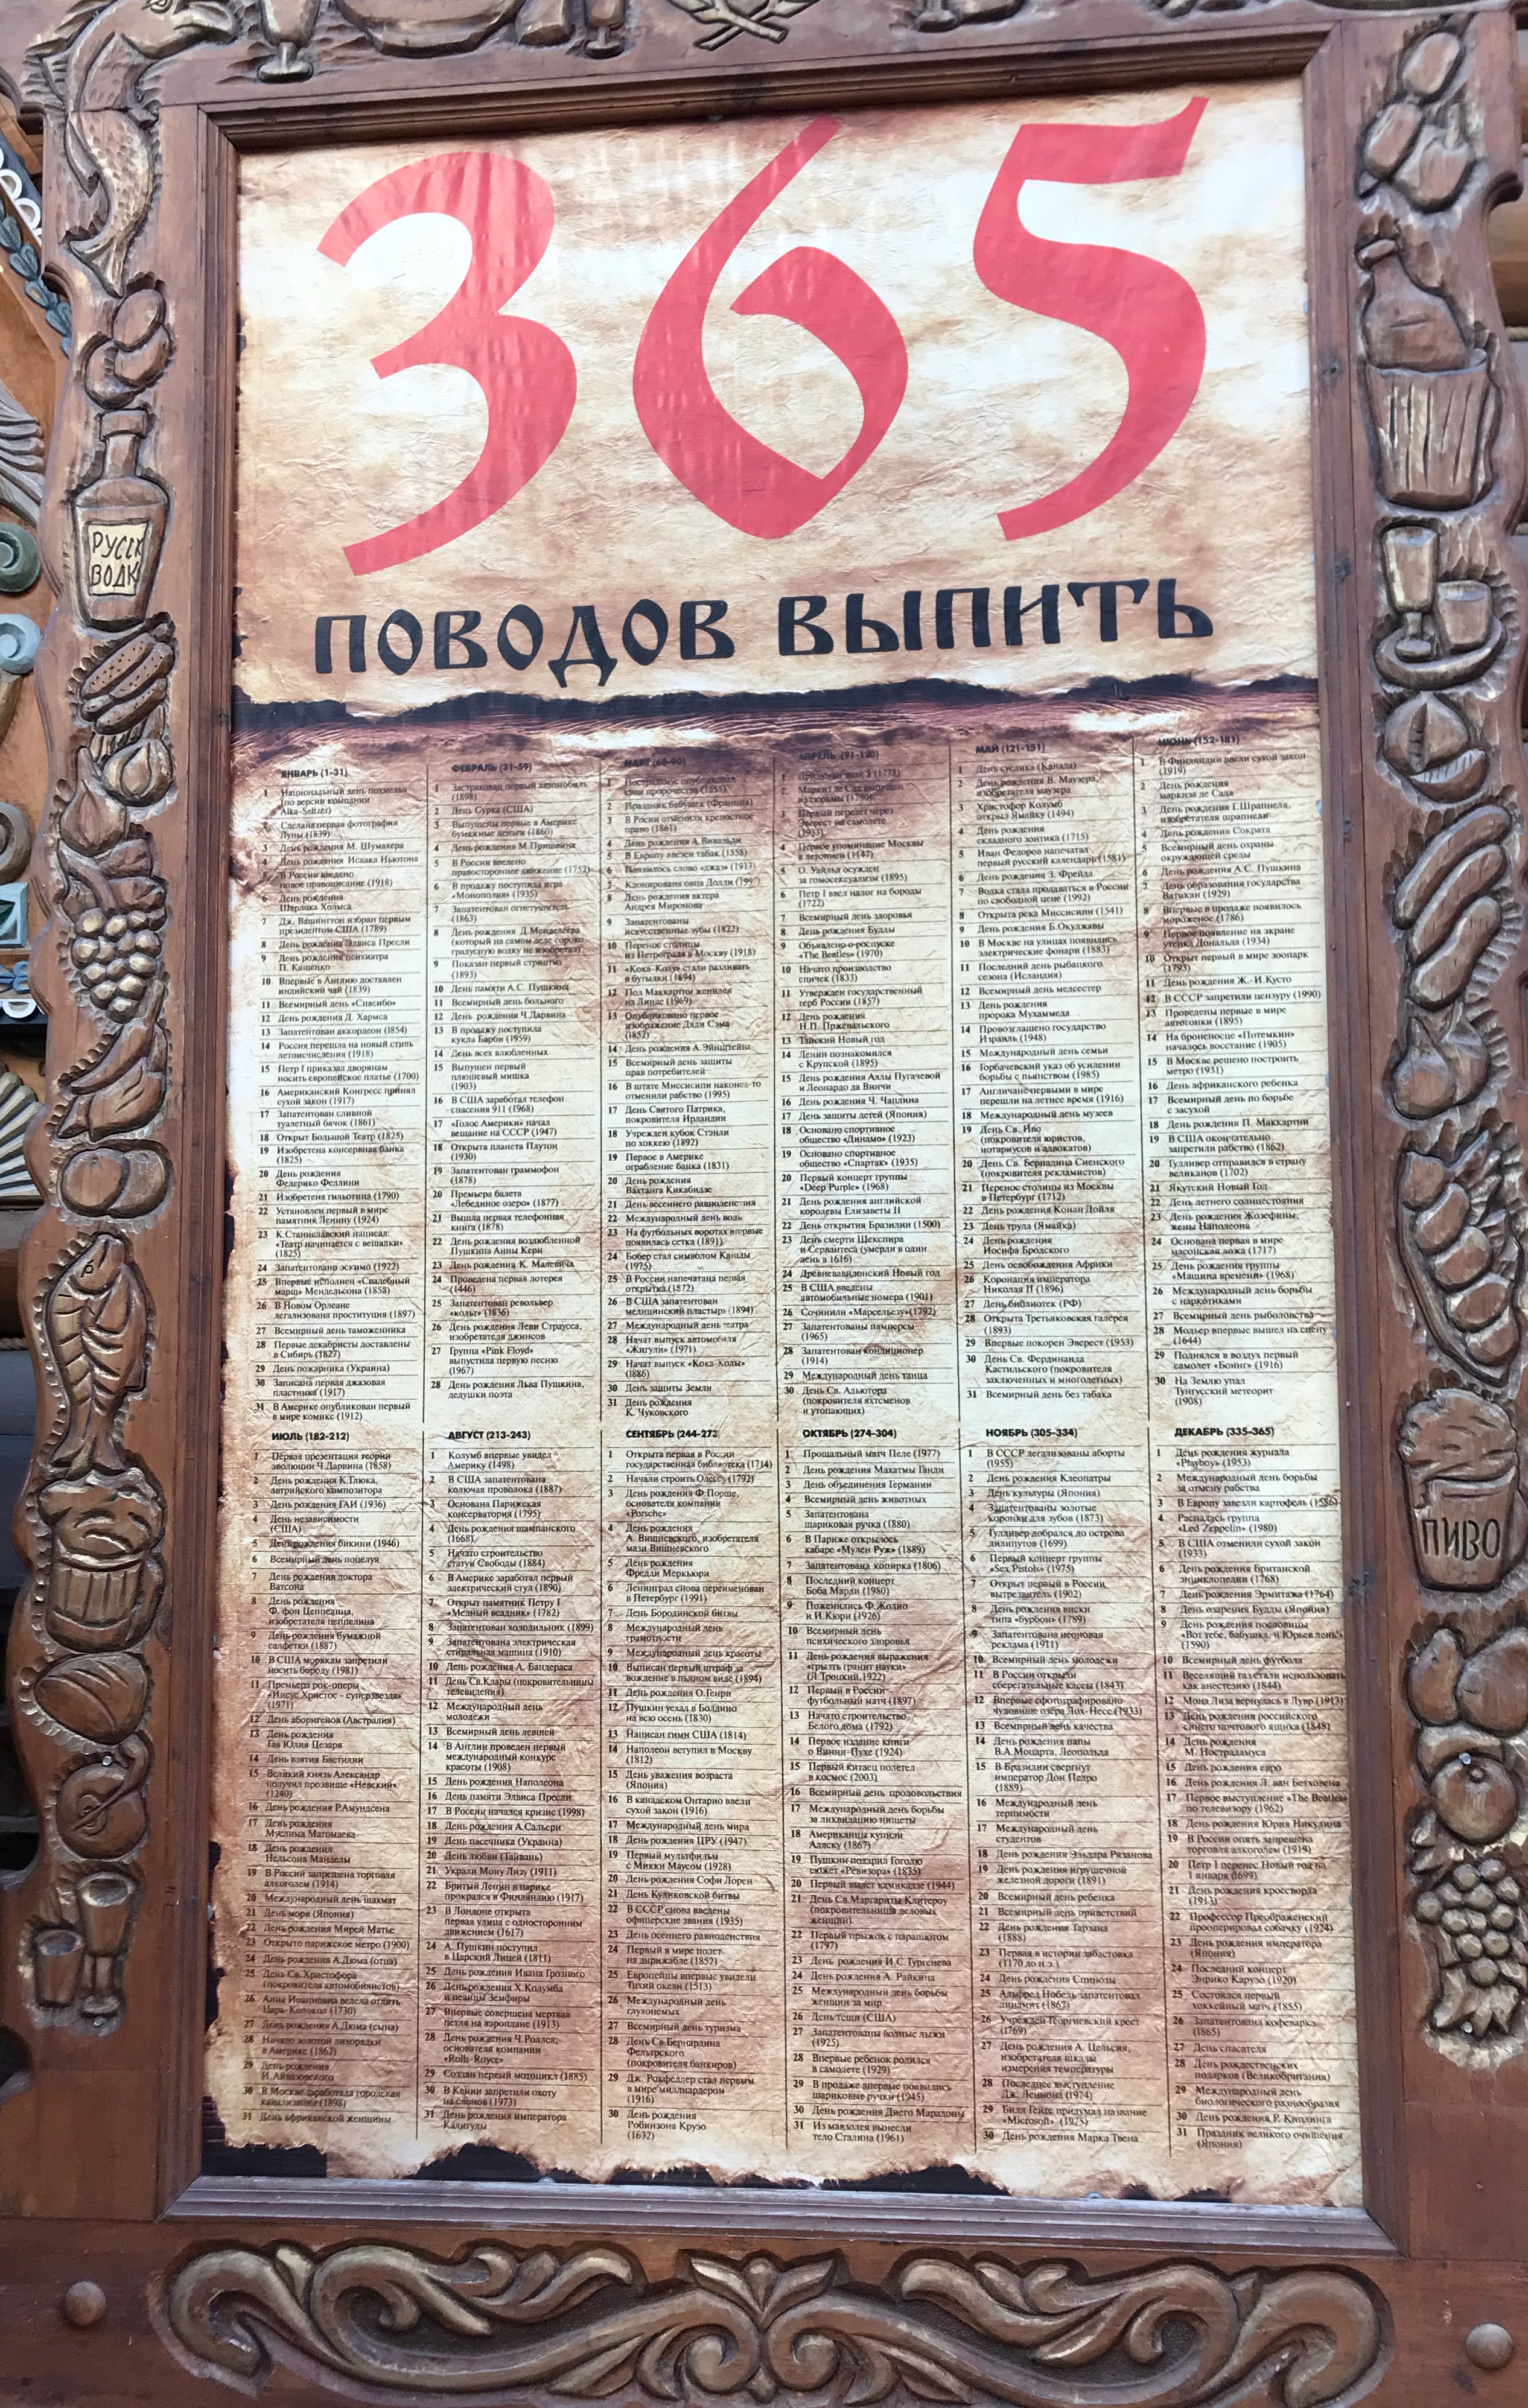 365
ПОВОДОВ ВЫПИТЬ
РУССК
ВОДК
ПИВО
ЯНВАРЬ (1-31)
1 Национальный день похмелья
(по версии компании
Alka-Seltzer)
2 Сделана первая фотография
Луны (1839)
3 День рождения М. Шумахера
4 День рождения Исаака Ньютона
5 В России введено
новое правописание (1918)
6 День рождения
Шерлока Холмса
7 Дж. Вашингтон избран первым
президентом США (1789)
8 День рождения Элвиса Пресли
9 День рождения психиатра
П. Кащенко
10 Впервые в Англию доставлен
индийский чай (1839)
11 Всемирный день «Спасибо»
12 День рождения Д. Хармса
13 Запатентован аккордеон (1854)
14 Россия перешла на новый стиль
летоисчисления (1918)
15 Петр I приказал дворянам
носить европейское платье (1700)
16 Американский Конгресс принял
сухой закон (1917)
17 Запатентован сливной
туалетный бачок (1861)
18 Открыт Большой Театр (1825)
19 Изобретена консервная банка
(1825)
20 День рождения
Федерико Феллини
21 Изобретена гильотина (1790)
22 Установлен первый в мире
памятник Ленину (1924)
23 К.Станиславский написал:
«Театр начинается с вешалки»
(1825)
24 Запатентовано эскимо (1922)
25 Впервые исполнен «Свадебный
марш» Мендельсона (1858)
26 В Новом Орлеане
легализована проституция (1897)
27 Всемирный день таможенника
28 Первые декабристы доставлены
в Сибирь (1827)
29 День пожарника (Украина)
30 Записана первая джазовая
пластинка (1917)
31 В Америке опубликован первый
в мире комикс (1912)
ФЕВРАЛЬ (31-59)
1 Застрахован первый автомобиль
(1898)
2 День Сурка (США)
3 Выпущены первые в Америке
бумажные деньги (1860)
4 День рождения М.Пришвина
5 В России введено
правостороннее движение (1752)
6 В продажу поступила игра
«Монополия» (1935)
7 Запатентован огнетушитель
(1863)
8 День рождения Д.Менделеева
(который на самом деле сорока-
градусную водку не изобретал)
9 Показан первый стриптиз
(1893)
10 День памяти А.С. Пушкина
11 Всемирный день больного
12 День рождения Ч.Дарвина
13 В продажу поступила
кукла Барби (1959)
14 День всех влюбленных
15 Выпущен первый
плюшевый мишка
(1903)
16 В США заработал телефон
спасения 911 (1968)
17 «Голос Америки» начал
вещание на СССР (1947)
18 Открыта планета Плутон
(1930)
19 Запатентован граммофон
(1878)
20 Премьера балета
«Лебединое озеро» (1877)
21 Вышла первая телефонная
книга (1878)
22 День рождения возлюбленной
Пушкина Анны Керн
23 День рождения К. Малевича
24 Проведена первая лотерея
(1446)
25 Запатентован револьвер
«кольт» (1836)
26 День рождения Леви Страусса,
изобретателя джинсов
27 Группа «Pink Floyd»
выпустила первую песню
(1967)
28 День рождения Льва Пушкина,
дедушки поэта
МАРТ (60-90)
1 Нострадамус опубликовал
свои пророчества (1555)
2 Праздник бабушек (Франция)
3 В Росии отменили крепостное
право (1861)
4 День рождения А.Вивальди
5 В Европу ввезен табак (1558)
6 Появилось слово «джаз» (1913)
7 Клонирована овца Долли
8 День рождения актера
Андрея Миронова
9 Запатентованы
искусственные зубы (1822)
10 Перенос столицы
из Петрограда в Москву (1918)
11 «Кока-Колу» стали разливать
в бутылки (1894)
12 Пол Маккартни женился
на Линде (1969)
13 Опубликовано первое
изображение Дяди Сэма
(1852)
14 День рождения А.Эйнштейна
15 Всемирный день защиты
прав потребителей
16 В штате Миссисипи наконец-то
отменили рабство (1995)
17 День Святого Патрика,
покровителя Ирландии
18 Учрежден кубок Стэнли
по хоккею (1892)
19 Первое в Америке
ограбление банка (1831)
20 День рождения
Вахтанга Кикабидзе
21 День весеннего равноденствия
22 Международный день воды
23 На футбольных воротах впервые
появилась сетка (1891)
24 Бобер стал символом Канады
(1975)
25 В России напечатана первая
открытка (1872)
26 В США запатентован
медицинский пластырь (1894)
27 Международный день театра
28 Начат выпуск автомобиля
«Жигули» (1971)
29 Начат выпуск «Кока-Колы»
(1886)
30 День защиты Земли
31 День рождения
К. Чуковского
АПРЕЛЬ (91-120)
1 Придуман знак $ (1778)
2 Маркиз де Сад выпущен
из тюрьмы (1790)
3 Первый перелет через
Эверест на самолете
(1933)
4 Первое упоминание Москвы
в летописи (1147)
5 О. Уайльд осужден
за гомосексуализм (1895)
6 Петр I ввел налог на бороды
(1722)
7 Всемирный день здоровья
8 День рождения Будды
9 Объявлено о роспуске
«The Beatles» (1970)
10 Начато производство
спичек (1833)
11 Утвержден государственный
герб России (1857)
12 День рождения
Н.П. Пржевальского
13 Тайский Новый год
14 Ленин познакомился
с Крупской (1895)
15 День рождения Аллы Пугачевой
и Леонардо да Винчи
16 День рождения Ч. Чаплина
17 День защиты детей (Япония)
18 Основано спортивное
общество «Динамо» (1923)
19 Основано спортивное
общество «Спартак» (1935)
20 Первый концерт группы
«Deep Purple» (1968)
21 День рождения английской
королевы Елизаветы II
22 День открытия Бразилии (1500)
23 День смерти Шекспира
и Сервантеса (умерли в один
день в 1616)
24 Древневавилонский Новый год
25 В США введены
автомобильные номера (1901)
26 Сочинили «Марсельезу»(1792)
27 Запатентованы памперсы
(1965)
28 Запатентован кондиционер
(1914)
29 Международный день танца
30 День Св. Адьютора
(покровителя яхтсменов
и утопающих)
МАЙ (121-151)
1 День суслика (Канада)
2 День рождения В. Маузера,
изобретателя маузера
3 Христофор Колумб
открыл Ямайку (1494)
4 День рождения
складного зонтика (1715)
5 Иван Федоров напечатал
первый русский календарь(1581)
6 День рождения З. Фрейда
7 Водка стала продаваться в России
по свободной цене (1992)
8 Открыта река Миссисипи (1541)
9 День рождения Б.Окуджавы
10 В Москве на улицах появились
электрические фонари (1883)
11 Последний день рыбацкого
сезона (Исландия)
12 Всемирный день медсестер
13 День рождения
пророка Мухаммеда
14 Провозглашено государство
Израиль (1948)
15 Международный день семьи
16 Горбачевский указ об усилении
борьбы с пьянством (1985)
17 Англичане первыми в мире
перешли на летнее время (1916)
18 Международный день музеев
19 День Св. Иво
(покровителя юристов,
нотариусов и адвокатов)
20 День Св. Бернадина Сиенского
(покровителя рекламистов)
21 Перенос столицы из Москвы
в Петербург (1712)
22 День рождения Конан Дойля
23 День труда (Ямайка)
24 День рождения
Иосифа Бродского
25 День освобождения Африки
26 Коронация императора
Николая II (1896)
27 День библиотек (РФ)
28 Открыта Третьяковская галерея
(1893)
29 Впервые покорен Эверест (1953)
30 День Св. Фердинанда
Кастильского (покровителя
заключенных и многодетных)
31 Всемирный день без табака
ИЮНЬ (152-181)
1 В Финляндии ввели сухой закон
(1919)
2 День рождения
маркиза де Сада
3 День рождения Г.Шрапнеля,
изобретателя шрапнели
4 День рождения Сократа
5 Всемирный день охраны
окружающей среды
6 День рождения А.С. Пушкина
7 День образования государства
Ватикан (1929)
8 Впервые в продаже появилось
мороженое (1786)
9 Первое появление на экране
утенка Дональда (1934)
10 Открыт первый в мире зоопарк
(1793)
11 День рождения Ж.-И.Кусто
12 В СССР запретили цензуру (1990)
13 Проведены первые в мире
автогонки (1895)
14 На броненосце «Потемкин»
началось восстание (1905)
15 В Москве решено построить
метро (1931)
16 День африканского ребенка
17 Всемирный день по борьбе
с засухой
18 День рождения П. Маккартни
19 В США окончательно
запретили рабство (1862)
20 Гулливер отправился в страну
великанов (1702)
21 Якутский Новый Год
22 День летнего солнцестояния
23 День рождения Жозефины,
жены Наполеона
24 Основана первая в мире
масонская ложа (1717)
25 День рождения группы
«Машина времени» (1968)
26 Международный день борьбы
с наркотиками
27 Всемирный день рыболовства
28 Мольер впервые вышел на сцену
(1644)
29 Поднялся в воздух первый
самолет «Боинг» (1916)
30 На Землю упал
Тунгусский метеорит
(1908)
ИЮЛЬ (182-212)
1 Первая презентация теории
эволюции Ч.Дарвина (1858)
2 День рождения К.Глюка,
автрийского композитора
3 День рождения ГАИ (1936)
4 День независимости
(США)
5 День рождения бикини (1946)
6 Всемирный день поцелуя
7 День рождения доктора
Ватсона
8 День рождения
Ф. фон Цеппелина,
изобретателя цеппелина
9 День рождения бумажной
салфетки (1887)
10 В США морякам запретили
носить бороду (1981)
11 Премьера рок-оперы
«Иисус Христос - суперзвезда»
(1971)
12 День аборигенов (Австралия)
13 День рождения
Гая Юлия Цезаря
14 День взятия Бастилии
15 Великий князь Александр
получил прозвище «Невский»
(1240)
16 День рождения Р.Амундсена
17 День рождения
Муслима Магомаева
18 День рождения
Нельсона Манделы
19 В России запрещена торговля
алкоголем (1914)
20 Международный день шахмат
21 День моря (Япония)
22 День рождения Мирей Матье
23 Открыто парижское метро (1900)
24 День рождения А.Дюма (отца)
25 День Св.Христофора
(покровителя автомобилистов)
26 Анна Иоанновна велела отлить
Царь-Колокол (1730)
27 День рождения А.Дюма (сына)
28 Начало золотой лихорадки
в Америке (1862)
29 День рождения
И.Айвазовского
30 В Москве заработала городская
канализация (1898)
31 День африканской женщины
АВГУСТ (213-243)
1 Колумб впервые увидел
Америку (1498)
2 В США запатентована
колючая проволока (1887)
3 Основана Парижская
консерватория (1795)
4 День рождения шампанского
(1668)
5 Начато строительство
статуи Свободы (1884)
6 В Америке заработал первый
электрический стул (1890)
7 Открыт памятник Петру I
«Медный всадник» (1782)
8 Запатентован холодильник (1899)
9 Запатентована электрическая
стиральная машина (1910)
10 День рождения А. Бандераса
11 День Св.Клары (покровительницы
телевидения)
12 Международный день
молодежи
13 Всемирный день левшей
14 В Англии проведен первый
международный конкурс
красоты (1908)
15 День рождения Наполеона
16 День памяти Элвиса Пресли
17 В России начался кризис (1998)
18 День рождения А.Сальери
19 День пасечника (Украина)
20 День любви (Тайвань)
21 Украли Мону Лизу (1911)
22 Бритый Ленин в парике
прокрался в Финляндию (1917)
23 В Лондоне открыта
первая улица с односторонним
движением (1617)
24 А. Пушкин поступил
в Царский Лицей (1811)
25 День рождения Ивана Грозного
26 День рождения Х.Колумба
и певицы Земфиры
27 Впервые совершена мертвая
петля на аэроплане (1913)
28 День рождения Ч.Роллса,
основателя компании
«Rolls-Royce»
29 Создан первый мотоцикл (1885)
30 В Кении запретили охоту
на слонов (1973)
31 День рождения императора
Калигулы
СЕНТЯБРЬ (244-273
1 Открыта первая в России
государственная библиотека (1714)
2 Начали строить Одессу (1792)
3 День рождения Ф.Порше,
основателя компании
«Porsche»
4 День рождения
А. Вишневского, изобретателя
мази Вишневского
5 День рождения
Фредди Меркьюри
6 Ленинград снова переименован
в Петербург (1991)
7 День Бородинской битвы
8 Международный день
грамотности
9 Международный день красоты
10 Выписан первый штраф за
вождение в пьяном виде (1894)
11 День рождения О.Генри
12 Пушкин уехал в Болдино
на всю осень (1830)
13 Написан гимн США (1814)
14 Наполеон вступил в Москву
(1812)
15 День уважения возраста
(Япония)
16 В канадском Онтарио ввели
сухой закон (1916)
17 Международный день мира
18 День рождения ЦРУ (1947)
19 Первый мультфильм
с Микки Маусом (1928)
20 День рождения Софи Лорен
21 День Куликовской битвы
22 В СССР снова введены
офицерские звания (1935)
23 День осеннего равноденствия
24 Первый в мире полет
на дирижабле (1852)
25 Европейцы впервые увидели
Тихий океан (1513)
26 Международный день
глухонемых
27 Всемирный день туризма
28 День Св.Бернардина
Фельтрского
(покровителя банкиров)
29 Дж. Рокфеллер стал первым
в мире миллиардером
(1916)
30 День рождения
Робинзона Крузо
(1632)
ОКТЯБРЬ (274-304)
1 Прощальный матч Пеле (1977)
2 День рождения Махатмы Ганди
3 День объединения Германии
4 Всемирный день животных
5 Запатентована
шариковая ручка (1880)
6 В Париже открылось
кабаре «Мулен Руж» (1889)
7 Запатентована копирка (1806)
8 Последний концерт
Боба Марли (1980)
9 Поженились Ф.Жолио
и И.Кюри (1926)
10 Всемирный день
психического здоровья
11 День рождения выражения
«грызть гранит науки»
(Л.Троцкий,1922)
12 Первый в России
футбольный матч (1897)
13 Начато строительство
Белого дома (1792)
14 Первое издание книги
о Винни-Пухе (1924)
15 Первый китаец полетел
в космос (2003)
16 Всемирный день продовольствия
17 Международный день борьбы
за ликвидацию нищеты
18 Американцы купили
Аляску (1867)
19 Пушкин подарил Гоголю
сюжет «Ревизора» (1835)
20 Первый вылет камикадзе (1944)
21 День Св.Маргариты Клитероу
(покровительницы деловых
женщин)
22 Первый прыжок с парашютом
(1797)
23 День рождения И.С.Тургенева
24 День рождения А. Райкина
25 Международный день борьбы
женщин за мир
26 День тещи (США)
27 Запатентованы водные лыжи
(1925)
28 Впервые ребенок родился
в самолете (1929)
29 В продаже впервые появились
шариковые ручки (1945)
30 День рождения Диего Марадоны
31 Из мавзолея вынесли
тело Сталина (1961)
НОЯБРЬ (305-334)
1 В СССР легализованы аборты
(1955)
2 День рождения Клеопатры
3 День культуры (Япония)
4 Запатентованы золотые
коронки для зубов (1873)
5 Гулливер добрался до острова
лилипутов (1699)
6 Первый концерт группы
«Sex Pistols» (1975)
7 Открыт первый в России
вытрезвитель (1902)
8 День рождения виски
типа «бурбон» (1789)
9 Запатентована неоновая
реклама (1911)
10 Всемирный день молодежи
11 В России открыли
сберегательные кассы (1843)
12 Впервые сфотографировано
чудовище озера Лох-Несс (1933)
13 Всемирный день качества
14 День рождения папы
В.А.Моцарта, Леопольда
15 В Бразилии свергнут
император Дон Педро
(1889)
16 Международный день
терпимости
17 Международный день
студентов
18 День рождения Эльдара Рязанова
19 День рождения игрушечной
железной дороги (1891)
20 Всемирный день ребенка
21 Всемирный день приветствий
22 День рождения Тарзана
(1888)
23 Первая в истории забастовка
(1170 до н.э.)
24 День рождения Спинозы
25 Альфред Нобель запатентовал
динамит (1867)
26 Учрежден Георгиевский крест
(1769)
27 День рождения А. Цельсия,
изобретателя шкалы
измерения температуры
28 Последнее выступление
Дж. Леннона (1974)
29 Билл Гейтс придумал название
«Microsoft» (1975)
30 День рождения Марка Твена
ДЕКАБРЬ (335-365)
1 День рождения журнала
«Playboy» (1953)
2 Международный день борьбы
за отмену рабства
3 В Европу завезли картофель (1586)
4 Распалась группа
«Led Zeppelin» (1980)
5 В США отменили сухой закон
(1933)
6 День рождения Британской
энциклопедии (1768)
7 День рождения Эрмитажа (1764)
8 День озарения Будды (Япония)
9 День рождения пословицы
«Вот тебе, бабушка, и Юрьев день!»
(1590)
10 Всемирный день футбола
11 Веселящий газ стали использовать
как анестезию (1844)
12 Мона Лиза вернулась в Лувр (1913)
13 День рождения российского
синего почтового ящика (1848)
14 День рождения
М. Нострадамуса
15 День рождения евро
16 День рождения Л. ван Бетховена
17 Первое выступление «The Beatles»
по телевизору (1962)
18 День рождения Юрия Никулина
19 В России опять запрещена
торговля алкоголем (1919)
20 Петр I перенес Новый год на
1 января (1699)
21 День рождения кроссворда
(1913)
22 Профессор Преображенский
прооперировал собачку (1924)
23 День рождения императора
(Япония)
24 Последний концерт
Энрико Карузо (1920)
25 Состоялся первый
хоккейный матч (1855)
26 Запатентована кофеварка
(1865)
27 День спасателя
28 День рождественских
подарков (Великобритания)
29 Международный день
биологического разнообразия
30 День рождения Р. Киплинга
31 Праздник великого очищения
(Япония)